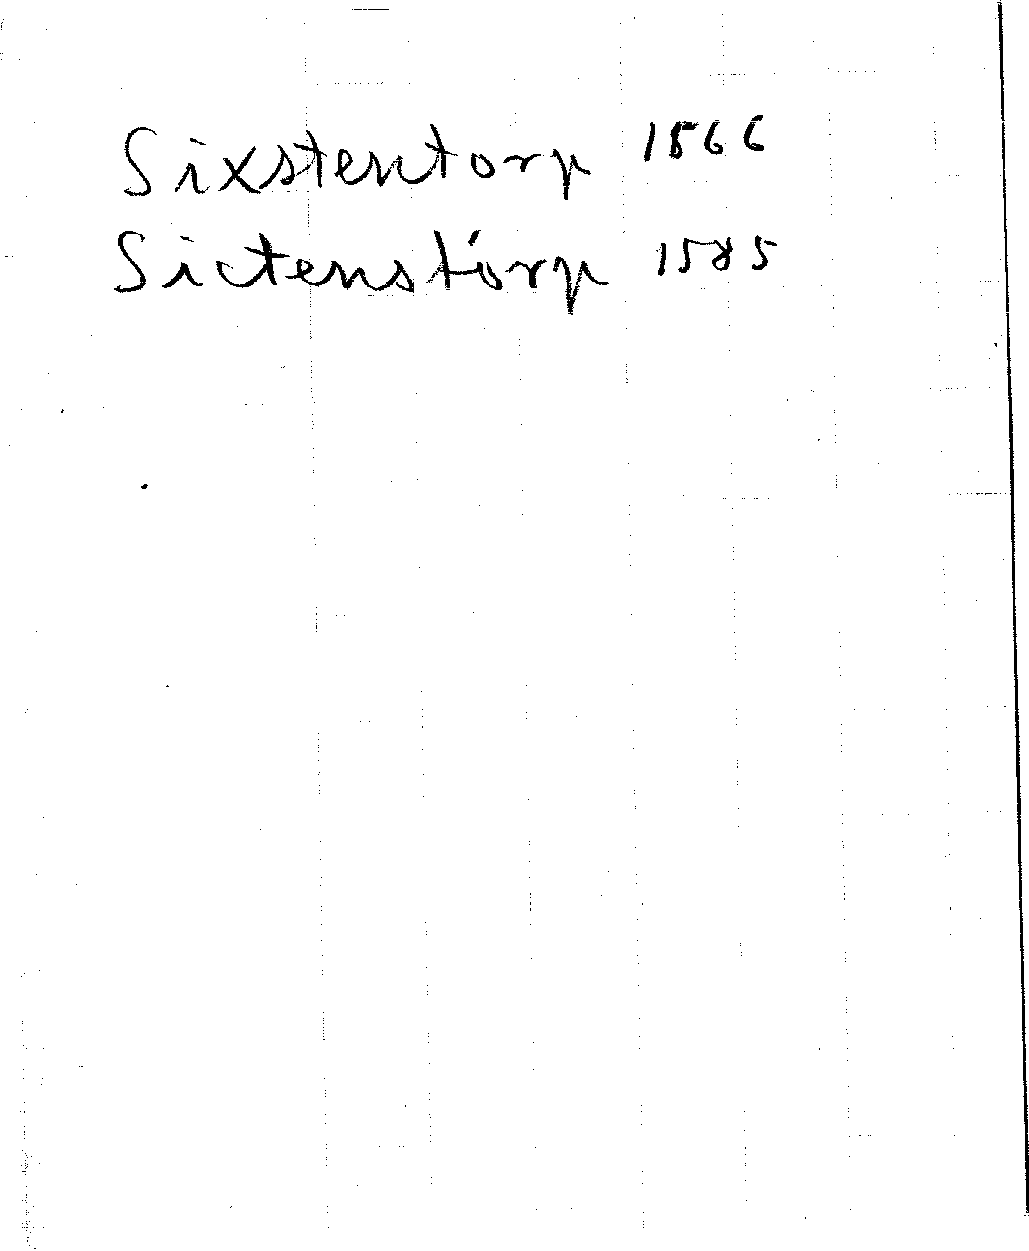 Sixstentorp 1566
Sictenstorp 1585